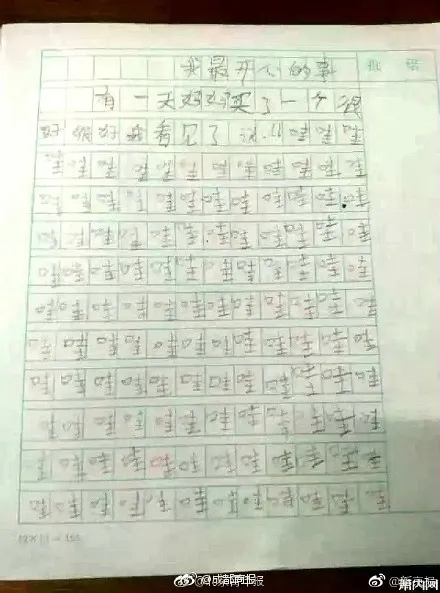 我最开心的事
批语
有一天妈妈买了一个很
好很好我看见了说:“哇哇哇
哇哇哇哇哇哇哇哇哇哇哇哇
哇哇哇哇哇哇哇哇哇哇哇哇
哇哇哇哇哇哇哇哇哇哇哇哇
哇哇哇哇哇哇哇哇哇哇哇哇
哇哇哇哇哇哇哇哇哇哇哇哇
哇哇哇哇哇哇哇哇哇哇哇哇
哇哇哇哇哇哇哇哇哇哇哇哇
哇哇哇哇哇哇哇哇哇哇哇哇
哇哇哇哇哇哇哇哇哇哇哇哇
哇哇哇哇哇哇哇哇哇哇哇哇